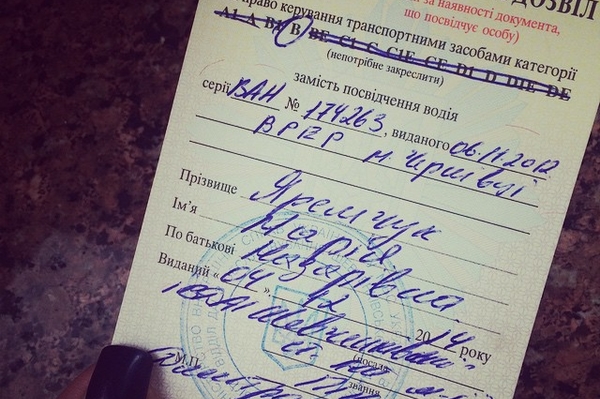 ДОЗВІЛ
за наявності документа,
що посвідчує особу)
право керування транспортними засобами категорії
А1 А В1 В ВЕ С1 С С1Е СЕ D1 D D1E DE
(непотрібне закреслити)
замість посвідчення водія
серії ВАН № 174263, виданого 06.11.2012
ВРЕР м. Чернівці
Прізвище Яремчук
Ім'я Марія
По батькові Назарівна
Виданий “ 04 ” 12 2014 року
(посада,
звання
М.П.